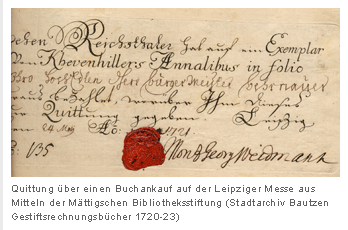 ochen Reichsthaler hat auf ein Exemplar
Von Khevenhillers Annalibus in folio
Herr bürgermeister
bezahlet, worüber Ihm diese
Quittung gegeben Leipzig
24 May Ao: 1721.
135
Moritz Georg Weidmann
Quittung über einen Buchankauf auf der Leipziger Messe aus
Mitteln der Mättigschen Bibliotheksstiftung (Stadtarchiv Bautzen
Gestiftsrechnungsbücher 1720-23)